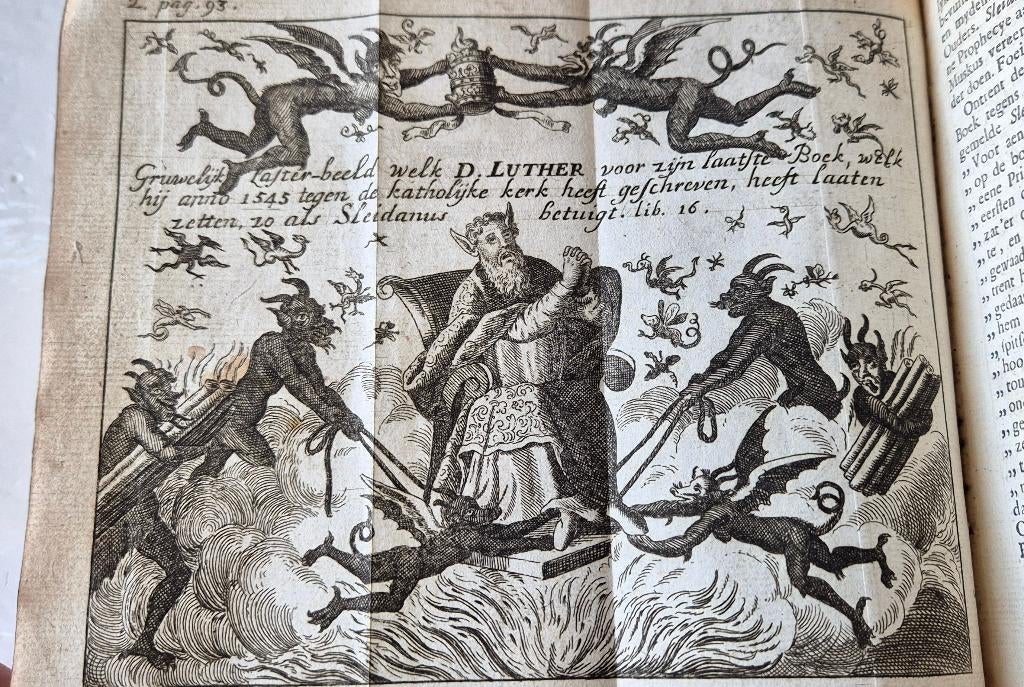 2. pag. 93.
Gruwelijk Laster-beeld welk D. LUTHER voor zijn laatste Boek, welk
hij anno 1545 tegen de katholijke kerk heeft geschreven, heeft laaten
zetten, zo als Sleidanus betuigt. lib. 16.
en myden
Ouders. Sleida
ne Prophecye a
Muskus vereer
der doen. Foei
Ontrent de
Boek tegens
gemelde Sle
„ Voor aen
„ op de bo
„ eene Pri
„ eersten
„ zat'er
„ te, en
„ gewaad
„ trent h
„ gedaa
„ hem
„ spitse
„ hoo
„ tou
„ on
„ ge
„ z
„ t